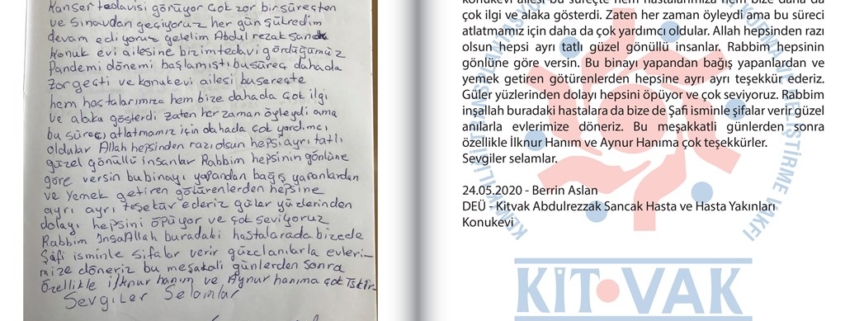 Kanser tedavisi görüyor Çok zor bir süreçten
ve sınavdan geçiyoruz her gün şükredim
devam ediyoruz gelelim Abdul rezak sancak
Konuk evi ailesine bizim tedavi gördüğümüz
Pandemi dönemi başlamıştı bu süreç dahada
zor geçti ve konukevi ailesi bu süreçte
hem hastalarımıza hem bize dahada çok ilgi
ve alaka gösterdi Zaten her zaman öyleydi ama
bu süreci atlatmamız için dahada çok yardımcı
oldular Allah hepsinden razı olsun hepsi ayrı tatlı
güzel gönüllü insanlar Rabbim hepsinin gönlüne
göre versin bu binayı yapandan bağış yapanlardan
ve yemek getiren götürenlerden hepsine
ayrı ayrı teşekür ederiz güler yüzlerinden
dolayı hepsini öpüyor ve çok seviyoruz
Rabbim İnşaAllah buradaki hastalarada bizede
Şafi isminle şifalar verir güzel anılarla evleri-
mize döneriz bu meşakatli günlerden sonra
özellikle ilknur hanım ve Aynur hanıma çok Tşkr
Sevgiler Selamlar
Konukevi ailesi bu süreçte hem hastalarımıza hem bize daha da
çok ilgi ve alaka gösterdi. Zaten her zaman öyleydi ama bu süreci
atlatmamız için daha da çok yardımcı oldular. Allah hepsinden razı
olsun hepsi ayrı tatlı güzel gönüllü insanlar. Rabbim hepsinin
gönlüne göre versin. Bu binayı yapandan bağış yapanlardan ve
yemek getiren götürenlerden hepsine ayrı ayrı teşekkür ederiz.
Güler yüzlerinden dolayı hepsini öpüyor ve çok seviyoruz. Rabbim
inşallah buradaki hastalara da bize de Şafi isminle şifalar verir güzel
anılarla evlerimize döneriz. Bu meşakkatli günlerden sonra
özellikle İlknur Hanım ve Aynur Hanıma çok teşekkürler.
Sevgiler selamlar.
24.05.2020 - Berrin Aslan
DEÜ - Kitvak Abdulrezzak Sancak Hasta ve Hasta Yakınları
Konukevi
KİT VAK